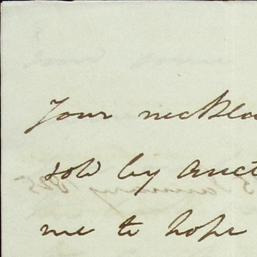 Your neckla
sold by auct
me to hope